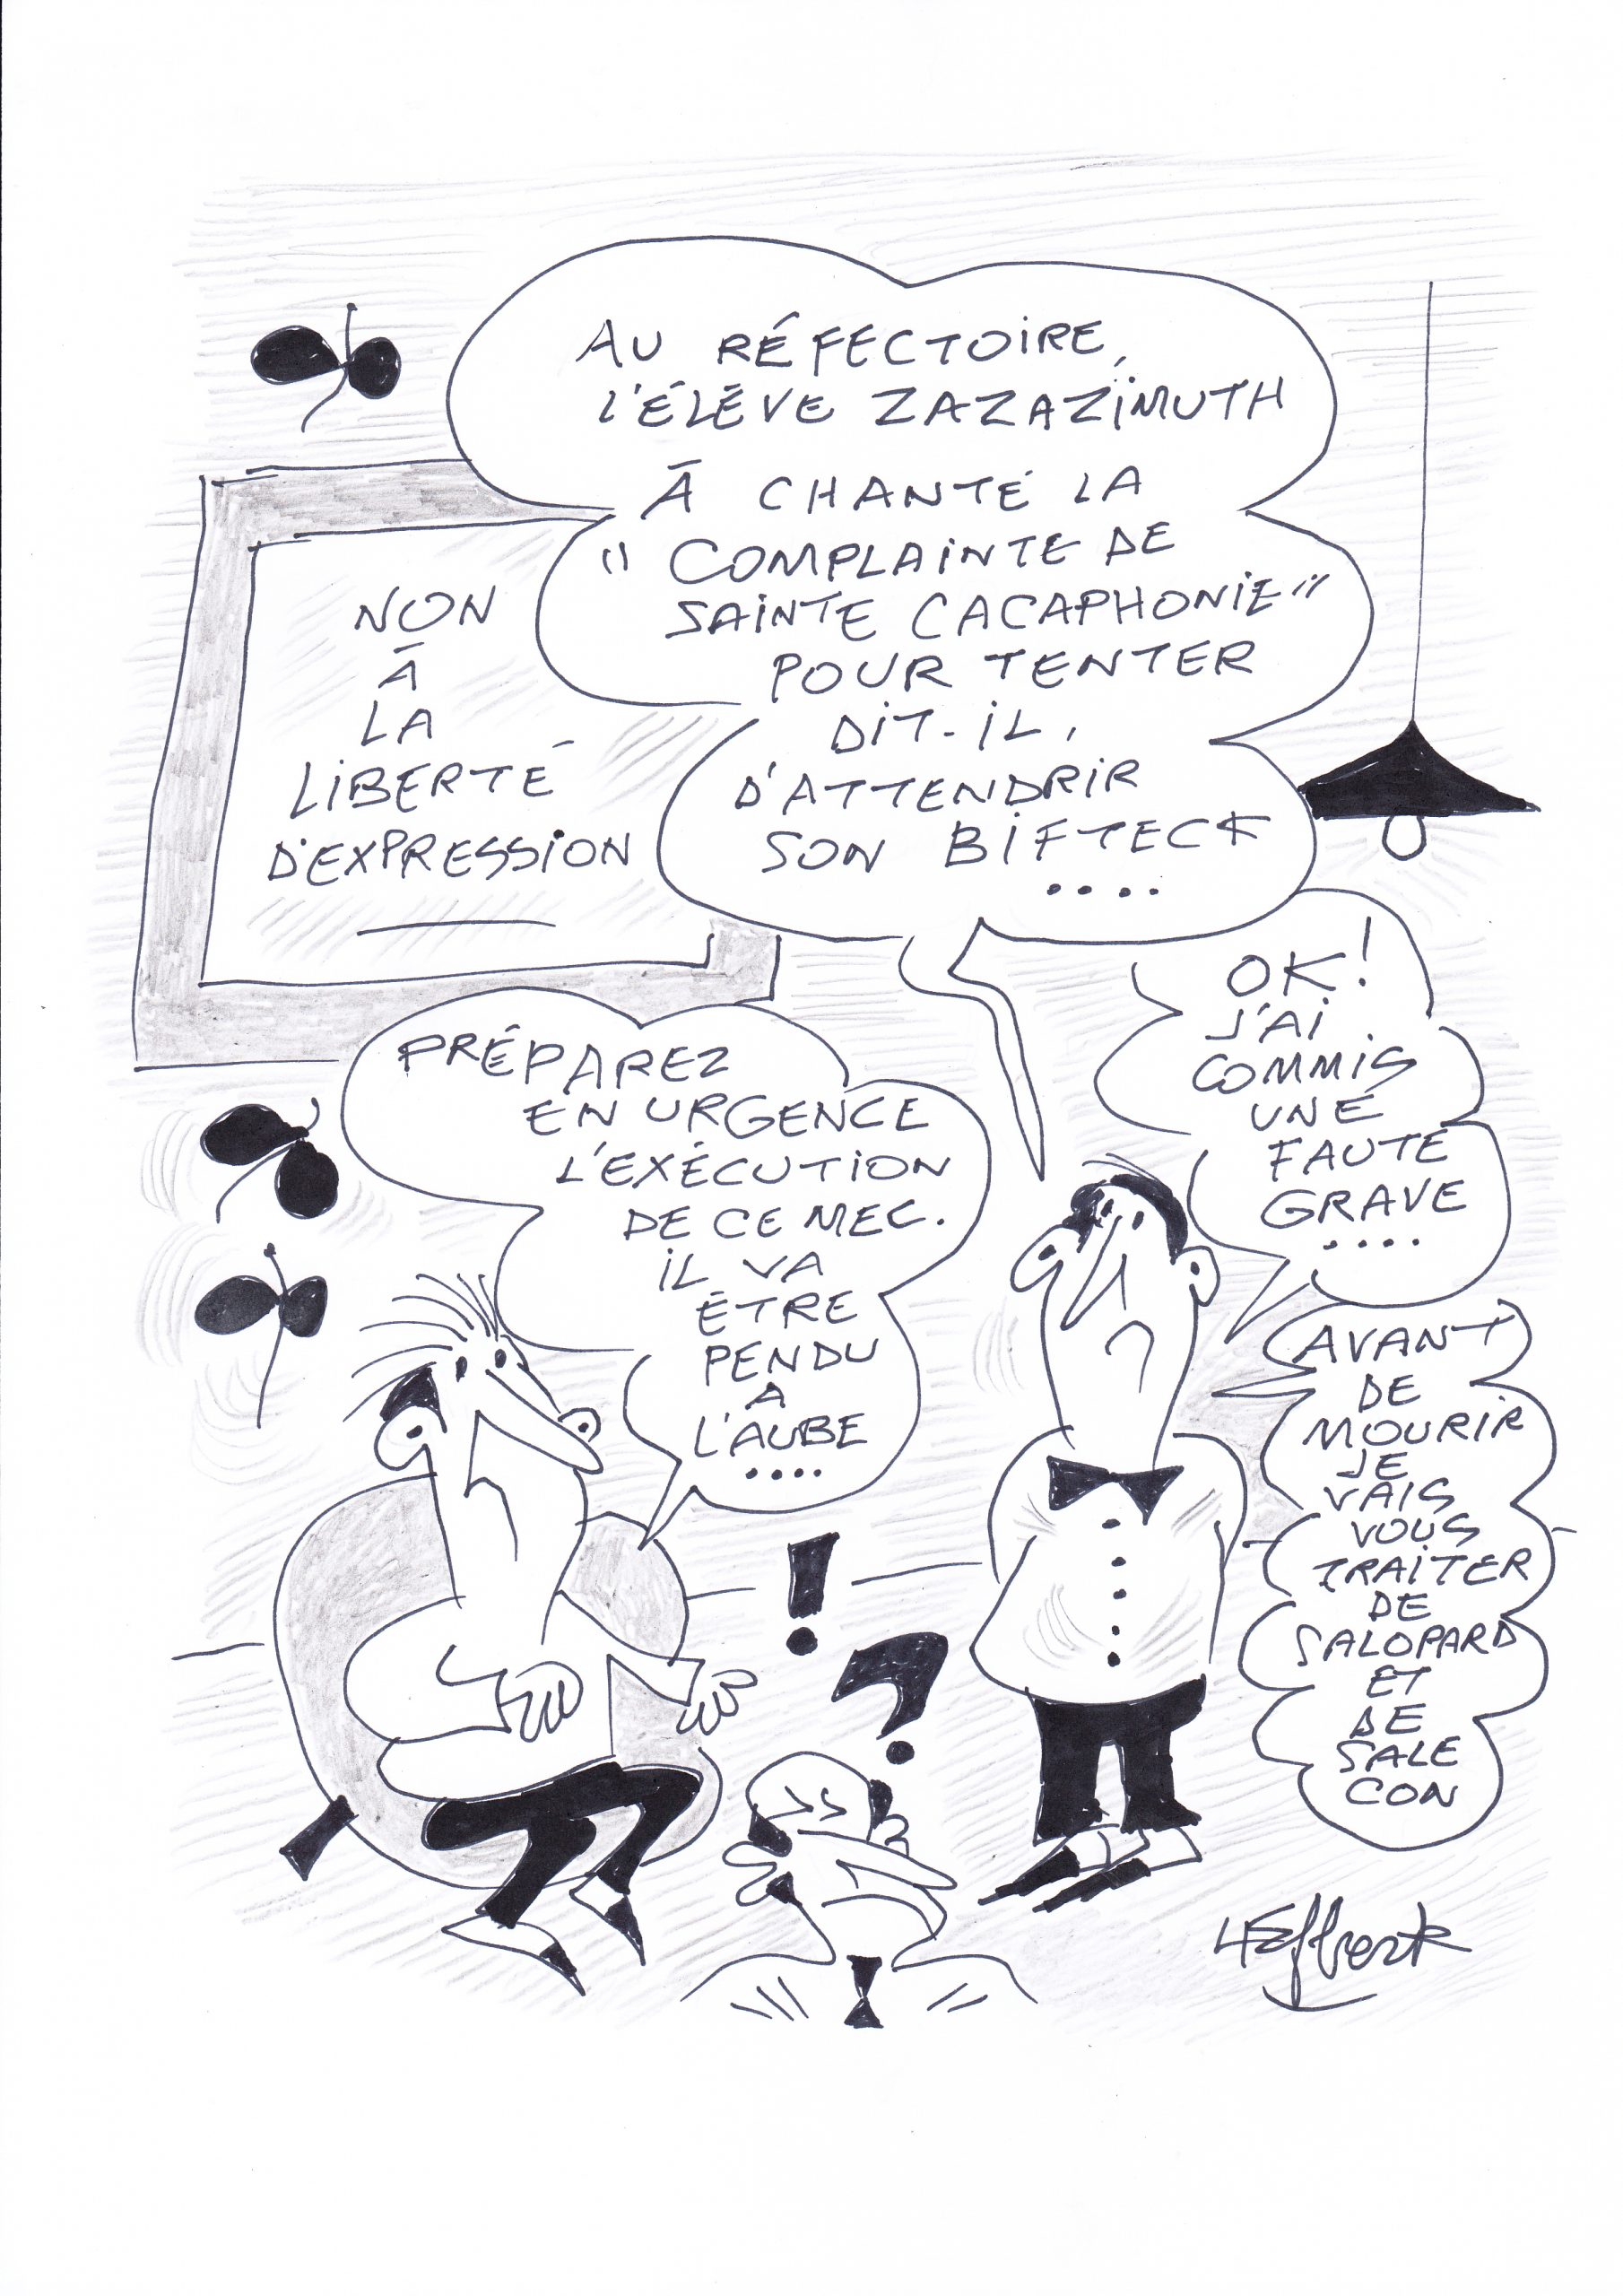 AU RÉFECTOIRE,
L'ÉLÉVE ZAZAZIMUTH
Ā CHANTÉ LA
"COMPLAINTE DE
SAINTE CACAPHONIE"
POUR TENTER
DIT-IL,
D'ATTENDRIR
SON BIFTECK
....
NON
Ā
LA
LIBERTÉ
D'EXPRESSION
PRÉPAREZ
EN URGENCE
L'EXÉCUTION
DE CE MEC.
IL VA
ÊTRE
PENDU
A
L'AUBE
....
OK!
J'AI
COMMIS
UNE
FAUTE
GRAVE
....
AVANT
DE
MOURIR
JE
VAIS
VOUS
TRAITER
DE
SALOPARD
ET
DE
SALE
CON
!
?